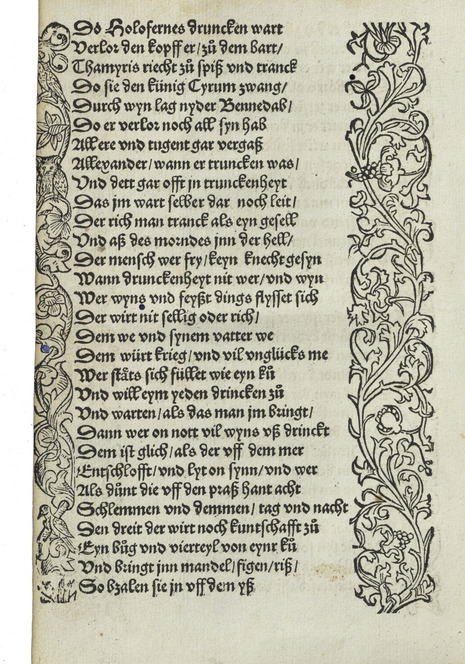 Do Holofernes druncken wart
Verlor den kopff er/zů dem bart/
Thamyris riecht zů spiß vnd tranck
Do sie den künig Cyrum zwang/
Durch wyn lag nyder Bennedab/
Do er verlor noch all syn hab
All ere vnd tugent gar vergaß
Allexander/wann er truncken was/
Vnd dett gar offt jn trunckenheyt
Das jm wart selber dar noch leit/
Der rich man tranck als eyn gesell
Vnd aß des morndes jnn der hell/
Der mensch wer fry/keyn knecht gesyn
Wann drunckenheyt nit wer/vnd wyn
Wer wyns vnd feyßt dings flysset sich
Der wirt nit sellig oder rich/
Dem we vnd synem vatter we
Dem würt krieg/vnd vil vnglücks me
Wer stäts sich füllet wie eyn ků
Vnd will eym yeden drincken zů
Vnd warten/als das man jm bringt/
Dann wer on nott vil wyns vß drinckt
Dem ist glich/als der vff dem mer
Entschlofft/vnd lyt on synn/vnd wer
Als důnt die vff den praß hant acht
Schlemmen vnd demmen/tag vnd nacht
Den dreit der wirt noch kuntschafft zů
Eyn bůg vnd vierteyl von eynr ků
Vnd bringt jnn mandel/figen/riß/
So bzalen sie jn vff dem yß